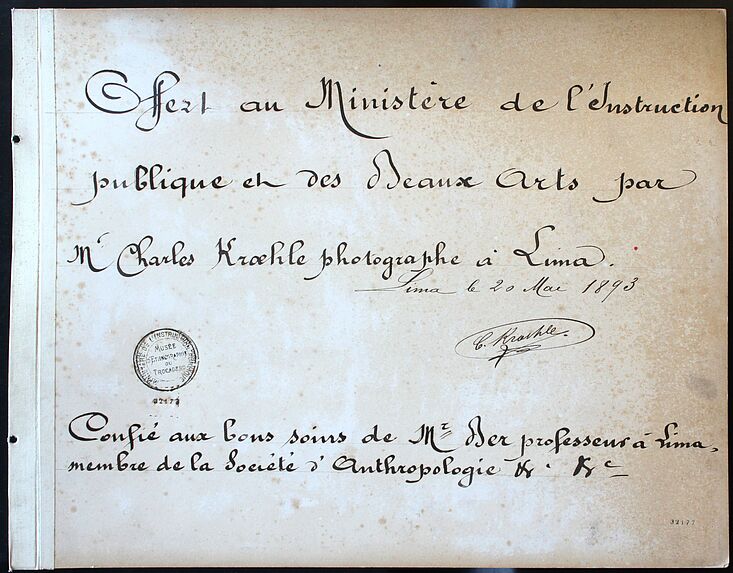 Offert au Ministère de l'Instruction
publique et des Beaux Arts par
Mr Charles Krœhle photographe à Lima.
Lima le 20 Mai 1893
C. Krœhle.
MUSÉE
D'ETHNOGRAPHIE
DU
TROCADERO
32177
Confié aux bons soins de Mr Ber professeur à Lima,
membre de la Société d'Anthropologie &. &c
32177